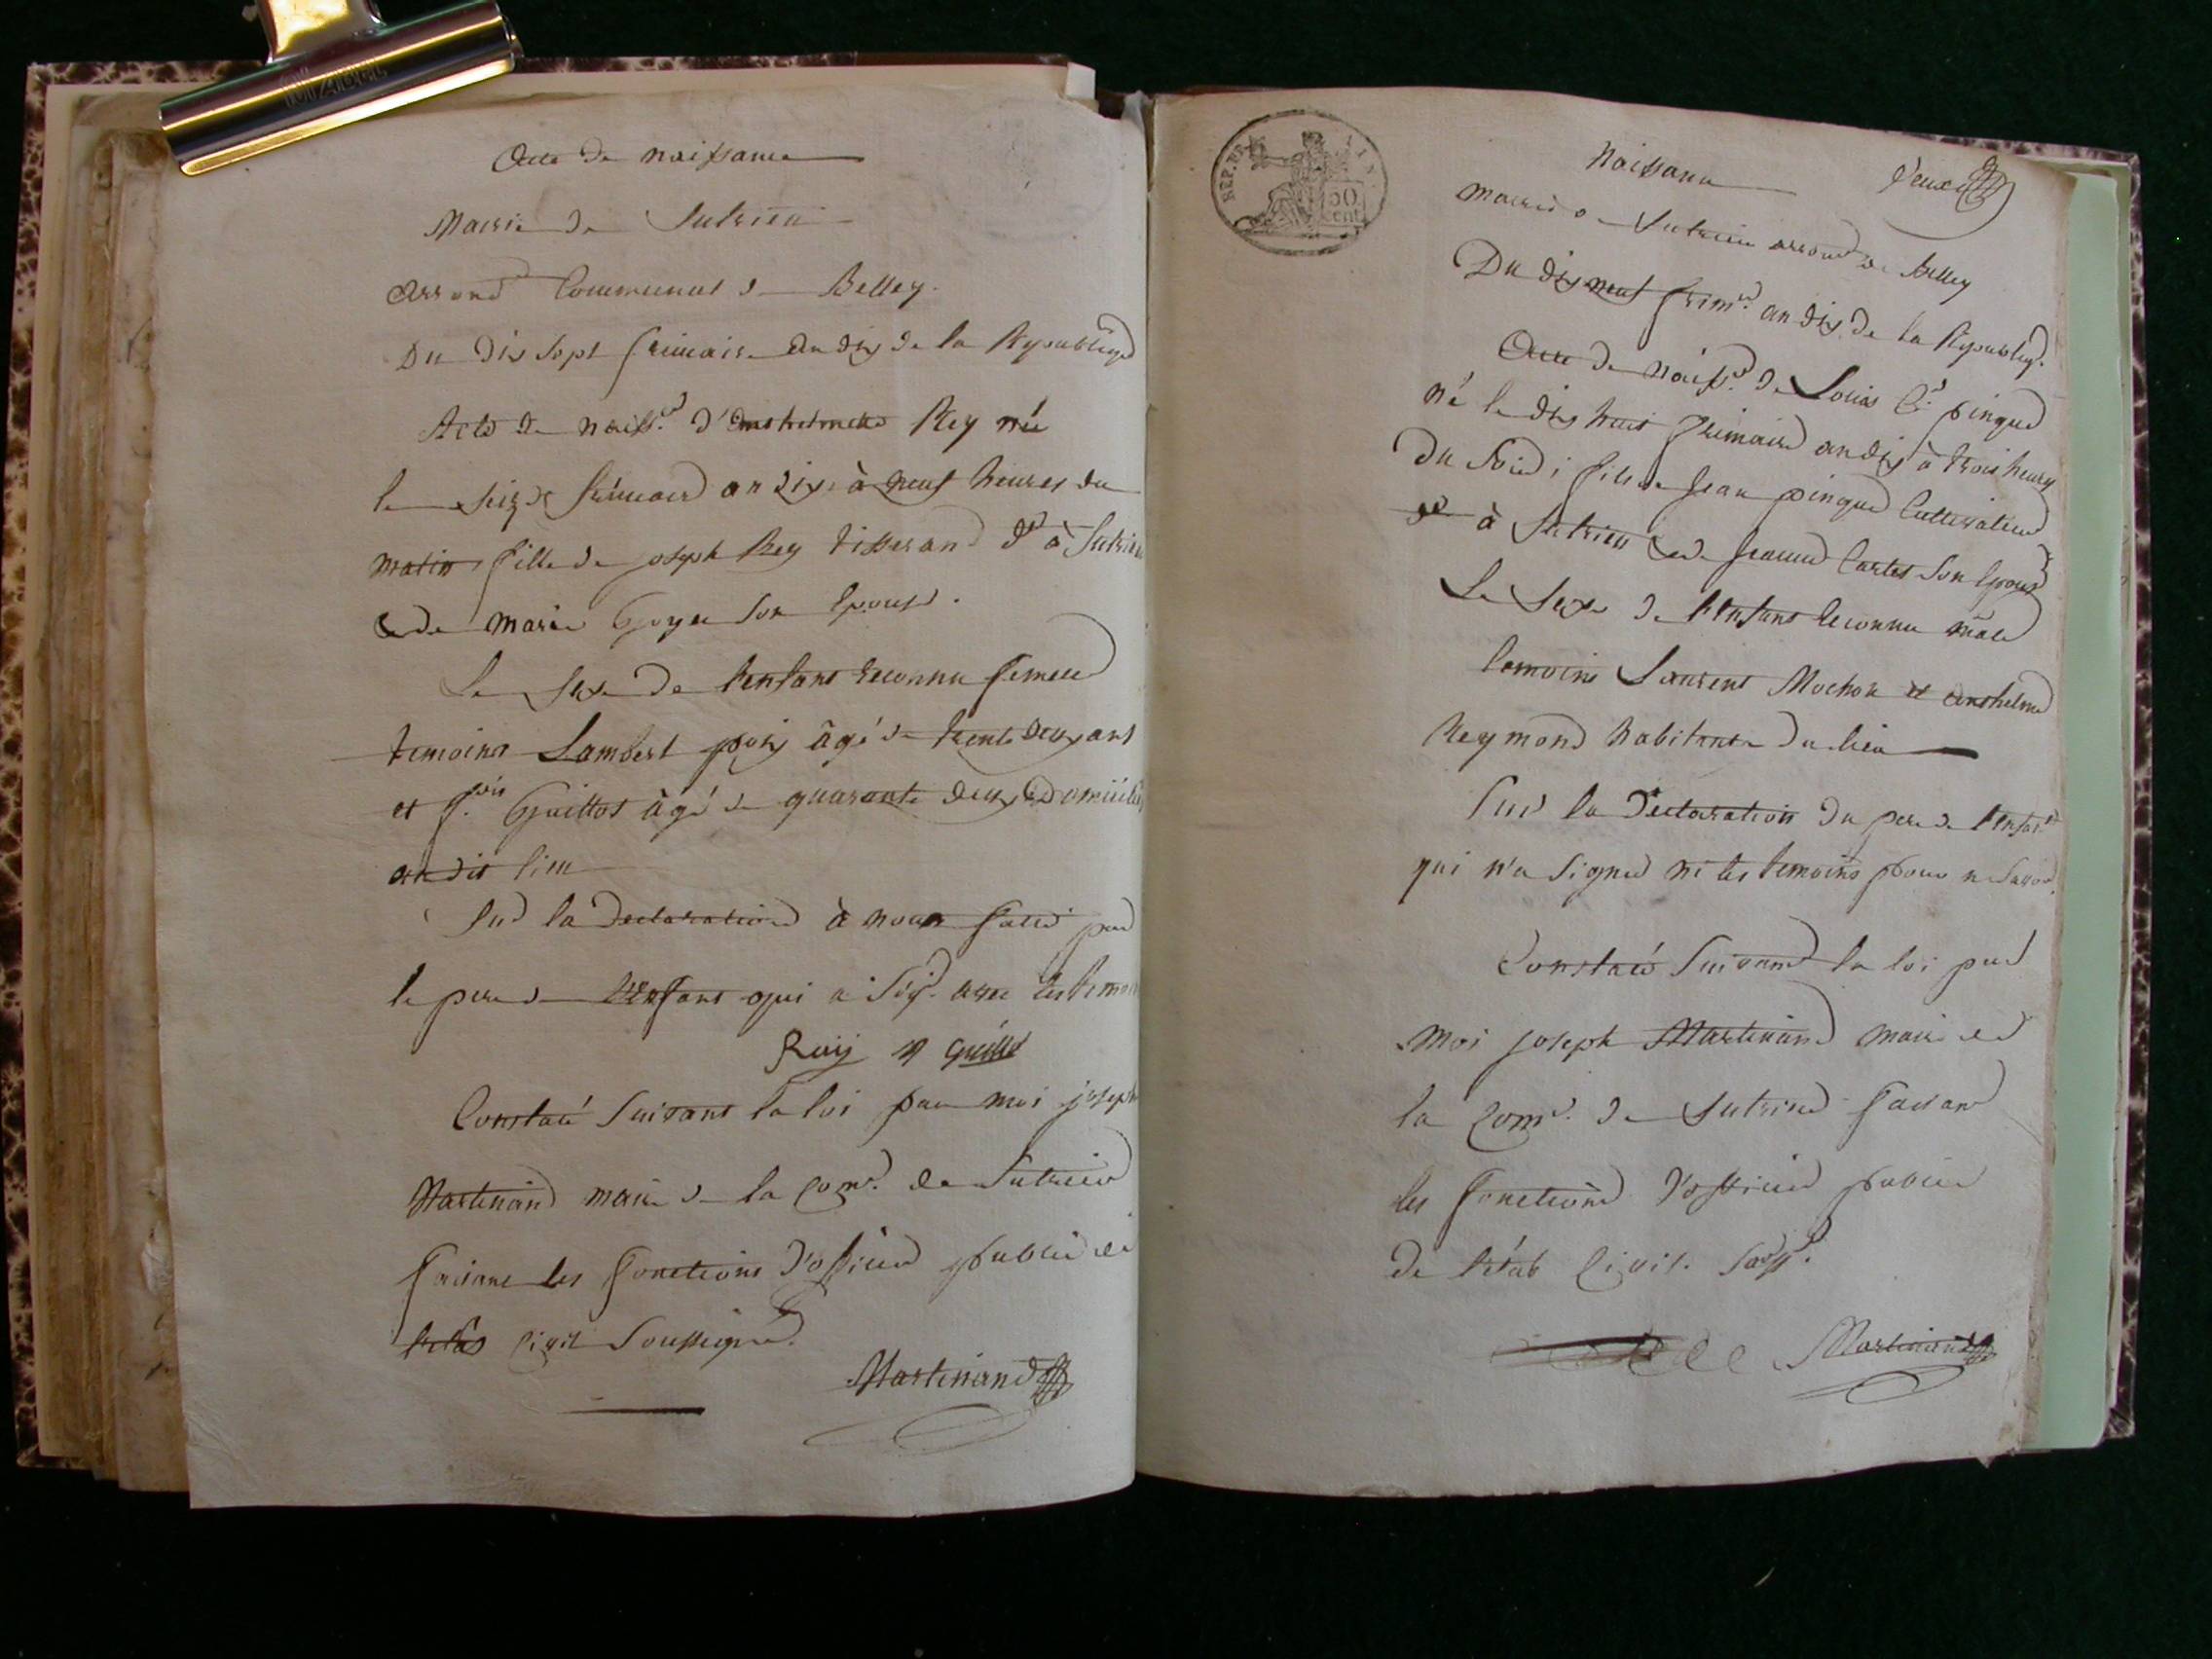 MAPED
Acte de naissance
Mairie de Sutrieu
arrond Communal de Belley.
Du dix sept frimaire an dix de la Republique
Acte de naiss.ce d'Enthelmette Rey née
le seize frimaire an dix à neuf heures du
matin fille de joseph Rey tisserand d.t à Sutrieu
et de marie Goyet son Epouse.
Le sexe de l'enfant reconnu femelle
temoins Lambert âgé de trente deux ans
et f.ois Guillot âgé de quarante deux domiciliés
audit lieu
Sur la Declaration à nous faite par
le pere de l'Enfant qui a sig. avec les temoins
Rey Guillot
Constaté suivant la loi par moi joseph
Martinand maire de la com.e de Sutrieu
faisant les fonctions d'officier public de
l'etat Civil soussigné.
Martinand
REP. FRA
50 cent
Naissance
Deux
mairie de Sutrieu arrond de Belley
Du dix neuf frim.re an dix de la Republiq.
Acte de naiss.ce de Louis C. pingue
né le dix huit frimaire an dix à trois heures
du soir; fils de jean pingue Cultivateur
d.t à Sutrieu et de jeanne Cartet son Epouse
Le sexe de l'Enfant reconnu mâle
temoins Laurent Mochon et Anthelme
Reymond habitants du lieu
Sur la Declaration du pere de l'Enfant
qui n'a signé ni les temoins pour ne savoir.
Constaté suivant la loi par
moi joseph Martinand maire de
la com.e de Sutrieu faisant
les fonctions d'officier public
de l'état Civil. soussg.
Martinand